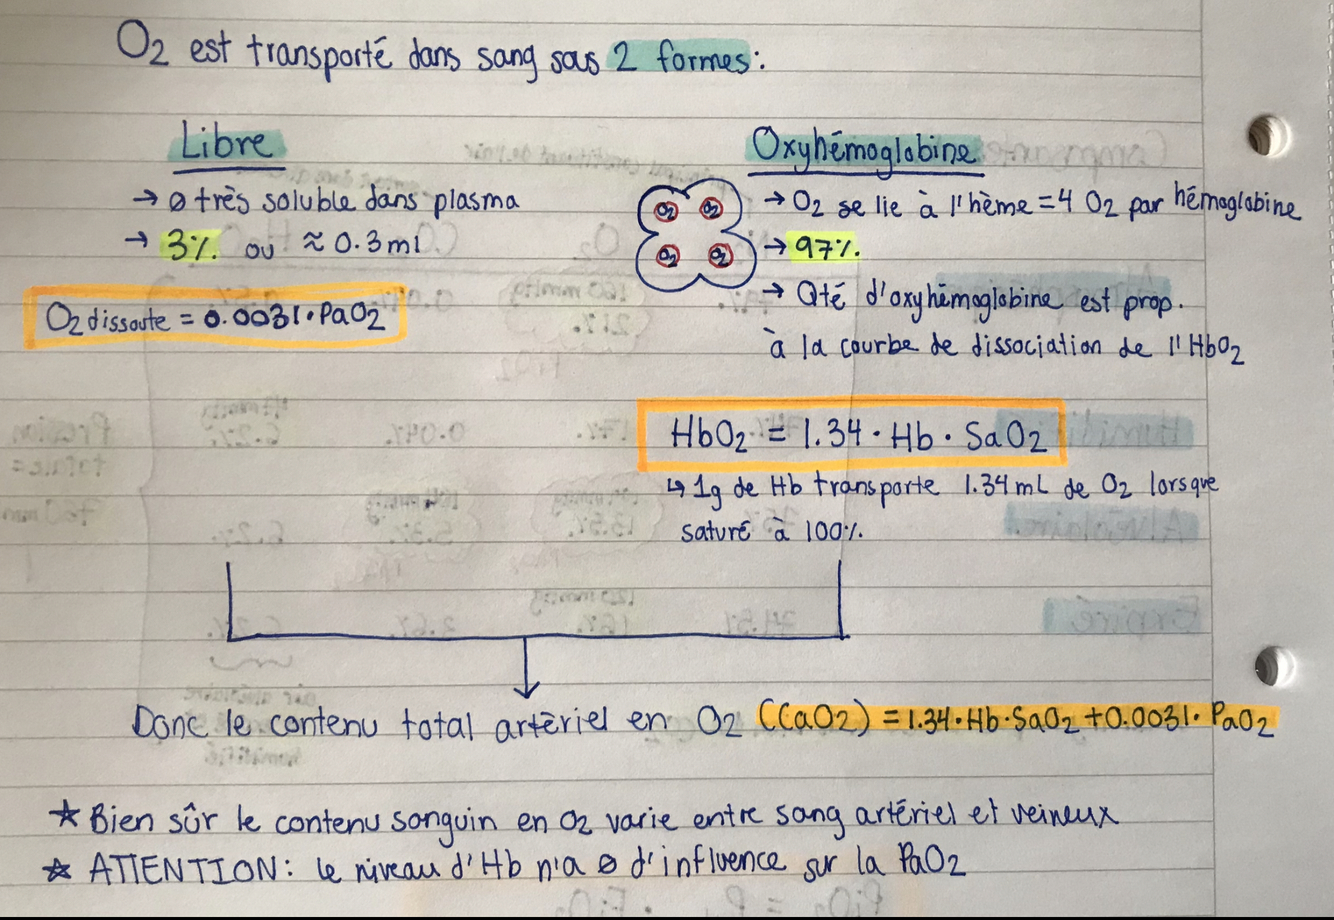 O2 est transporté dans sang sous 2 formes:
Libre
→ ∅ très soluble dans plasma
→ 3% ou ≈ 0.3 ml
O2 dissoute = 0.0031 · PaO2
Oxyhémoglobine
O2 O2
O2 O2
→ O2 se lie à l'hème = 4 O2 par hémoglobine
→ 97%
→ Qté d'oxyhémoglobine est prop.
à la courbe de dissociation de l'HbO2
HbO2 = 1.34 · Hb · SaO2
↳ 1g de Hb transporte 1.34 mL de O2 lorsque
saturé à 100%
Donc le contenu total artériel en O2 (CaO2) = 1.34 · Hb · SaO2 + 0.0031 · PaO2
★ Bien sûr le contenu sanguin en O2 varie entre sang artériel et veineux
★ ATTENTION: le niveau d'Hb n'a ∅ d'influence sur la PaO2